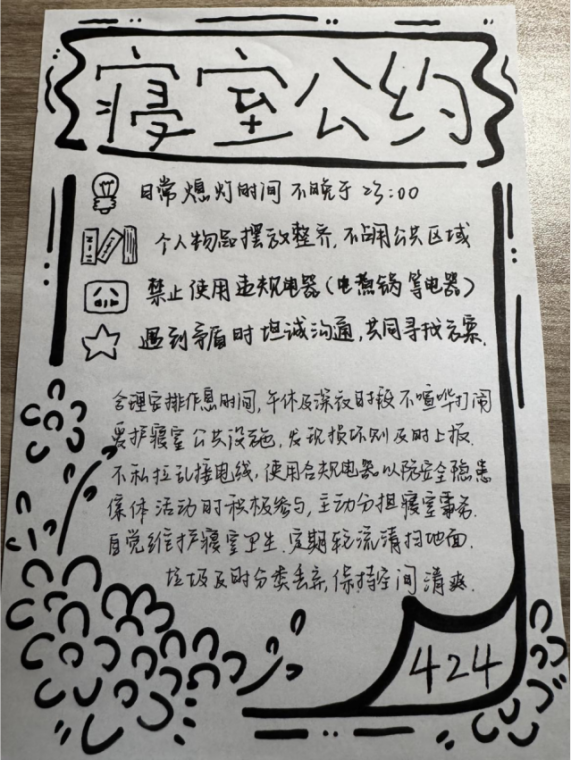 寝室公约
日常熄灯时间不晚于23:00
个人物品摆放整齐,不占用公共区域
禁止使用违规电器(电煮锅等电器)
遇到矛盾时坦诚沟通,共同寻找方案.
合理安排作息时间,午休及深夜时段不喧哗打闹
爱护寝室公共设施,发现损坏则及时上报.
不私拉乱接电线,使用合规电器以防安全隐患
集体活动时积极参与,主动分担寝室事务.
自觉维护寝室卫生.定期轮流清扫地面.
垃圾及时分类丢弃,保持空间清爽.
424